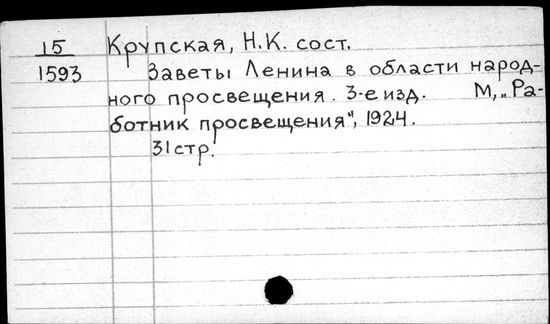 15 Крупская, Н.К. сост.
1593 Заветы Ленина в области народ-
ного просвещения. 3-е изд. М, „Ра-
ботник просвещения", 1924.
31 стр.